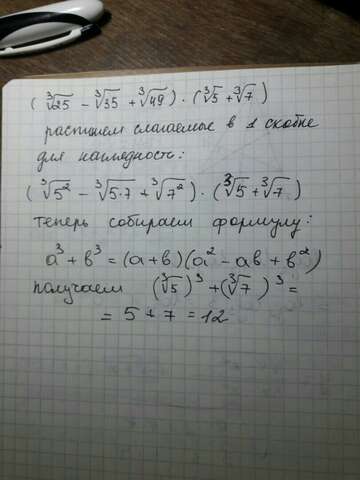 (∛25 − ∛35 + ∛49) · (∛5 + ∛7)
распишем слагаемые в 1 скобке
для наглядности:
(∛5² − ∛5·7 + ∛7²) · (∛5 + ∛7)
теперь собираем формулу:
a³ + b³ = (a+b)(a² − ab + b²)
получаем (∛5)³ + (∛7)³ =
= 5 + 7 = 12